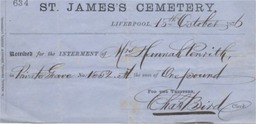 634
ST. JAMES'S CEMETERY,
LIVERPOOL, 15th October 186
Received for the INTERMENT of Mrs Hannah Penrith
in Private Grave No. 1667 the sum of One pound
FOR THE TRUSTEES,
Chas Bird